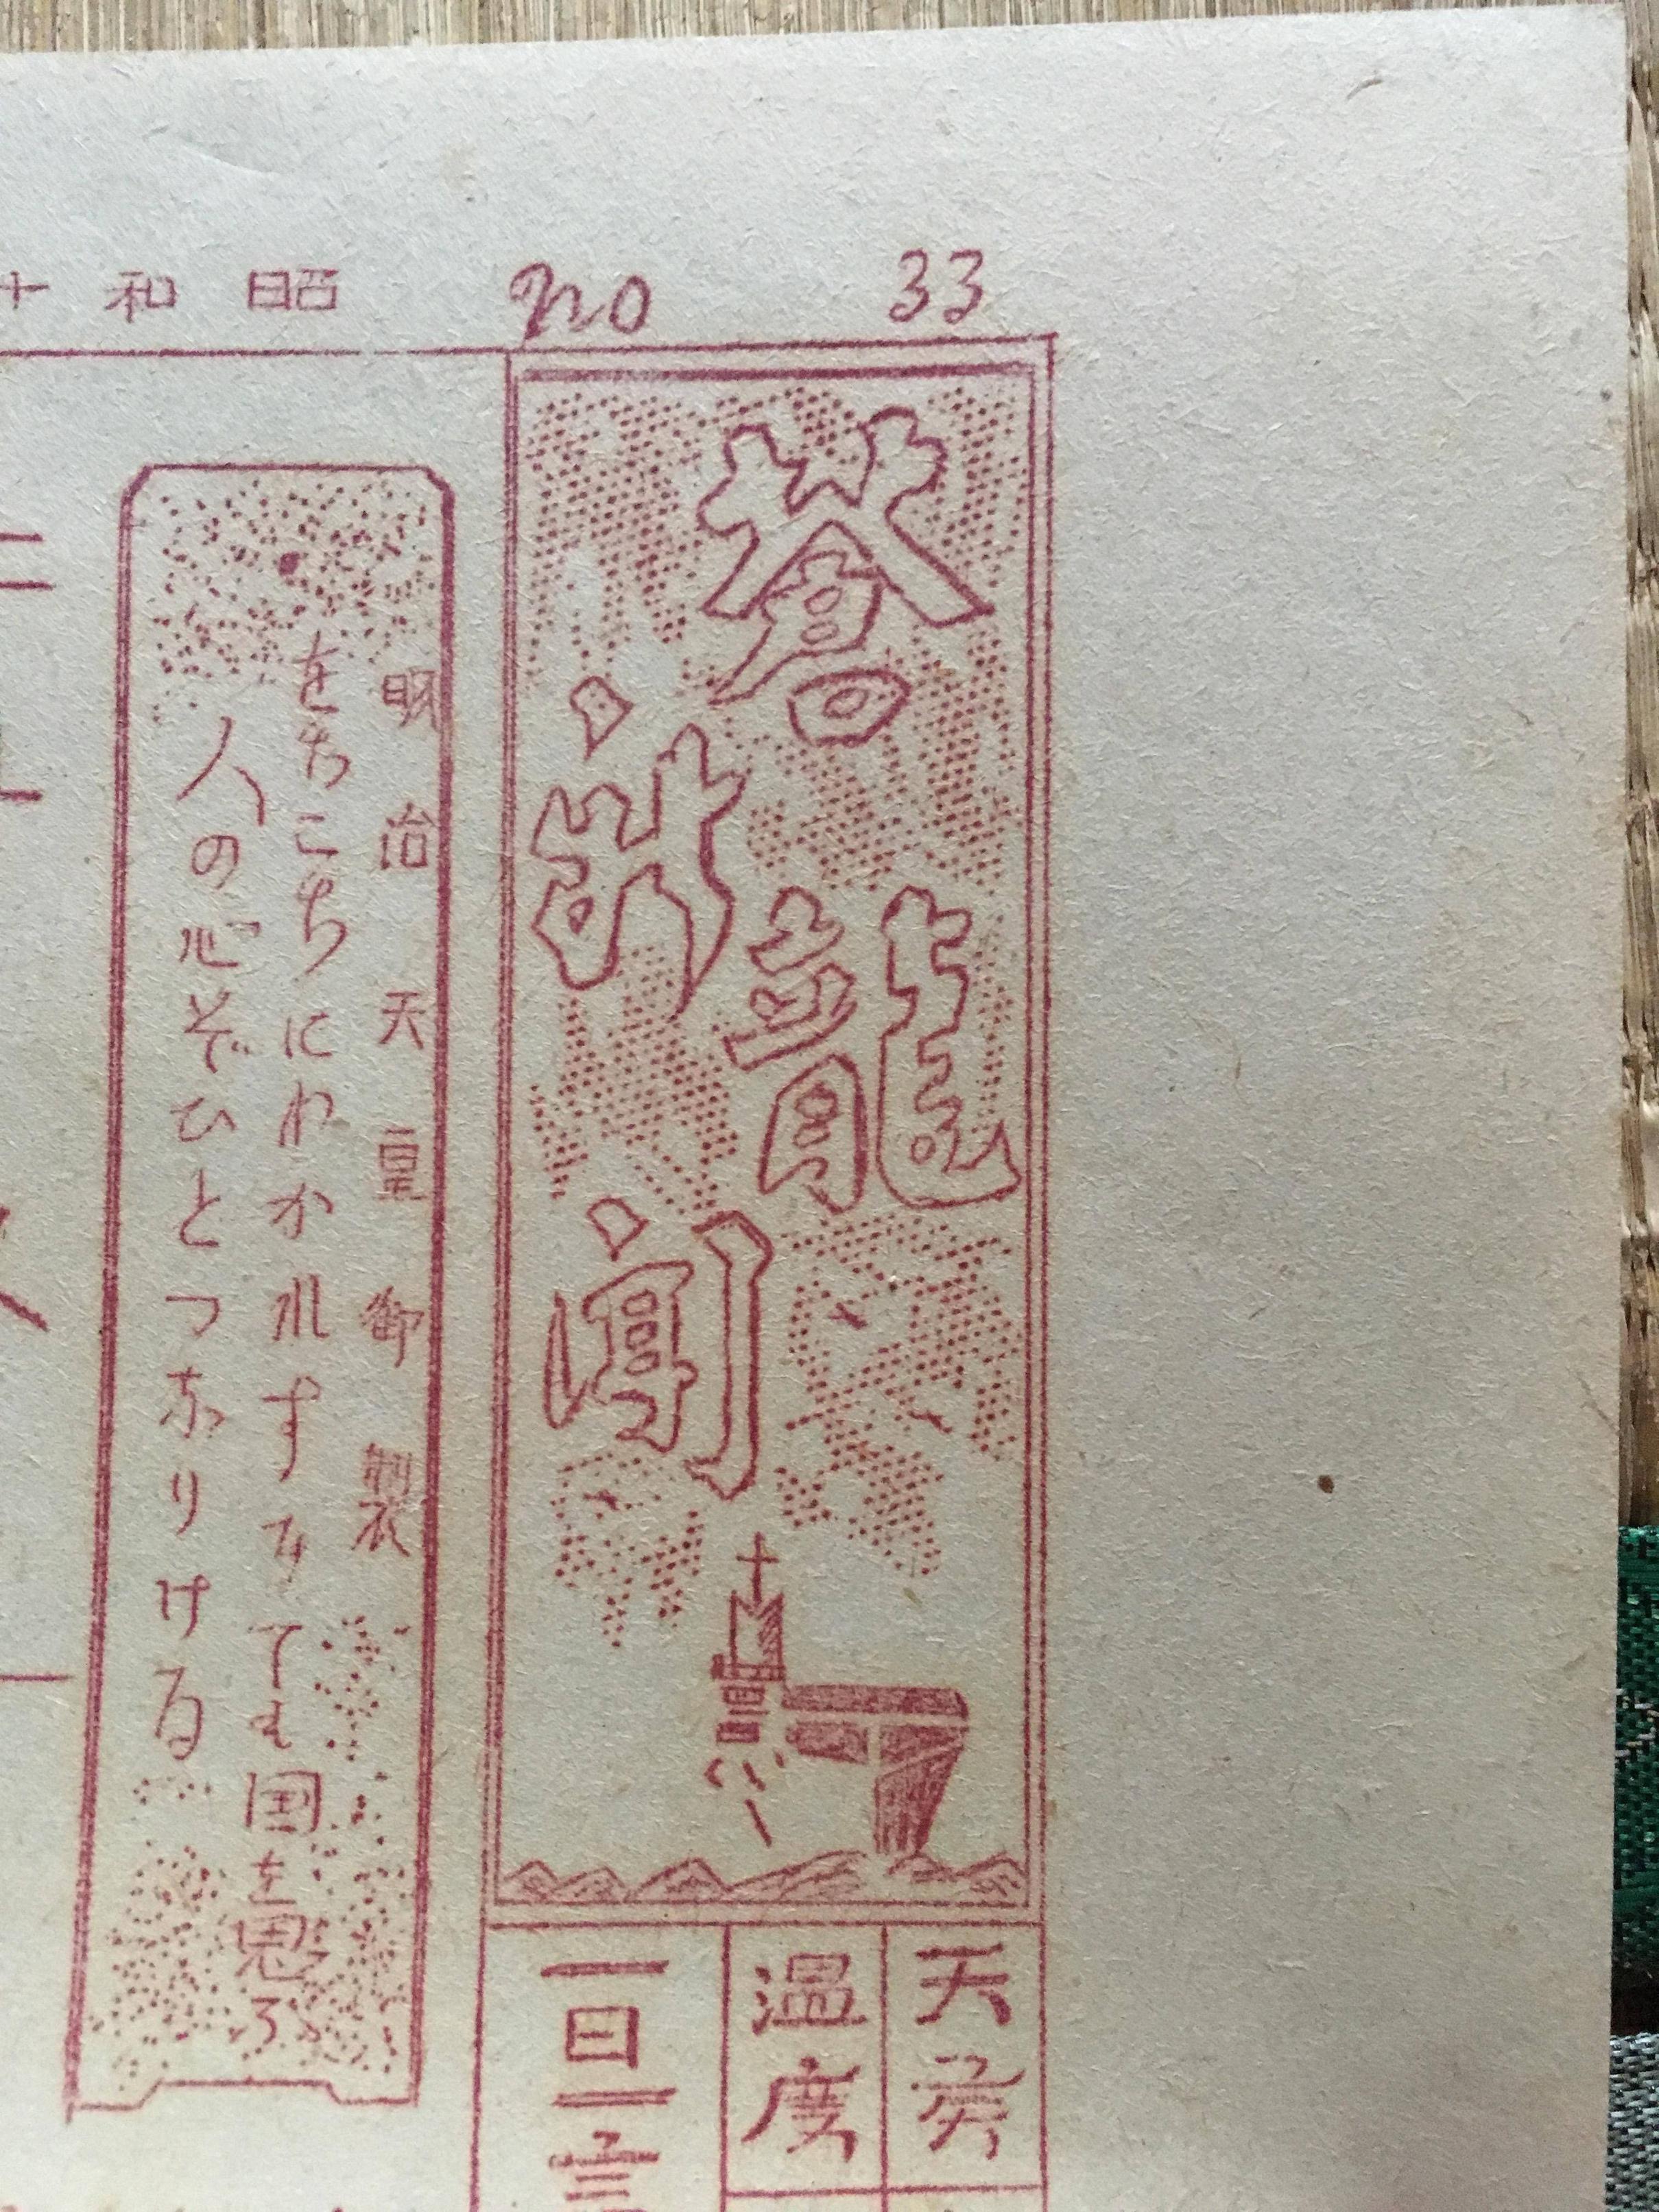 no 33
蒼龍
新聞
天候
温度
一日一言
昭和十
明治天皇御製
をちこちにわかれすみても国を思ふ
人の心ぞひとつなりける